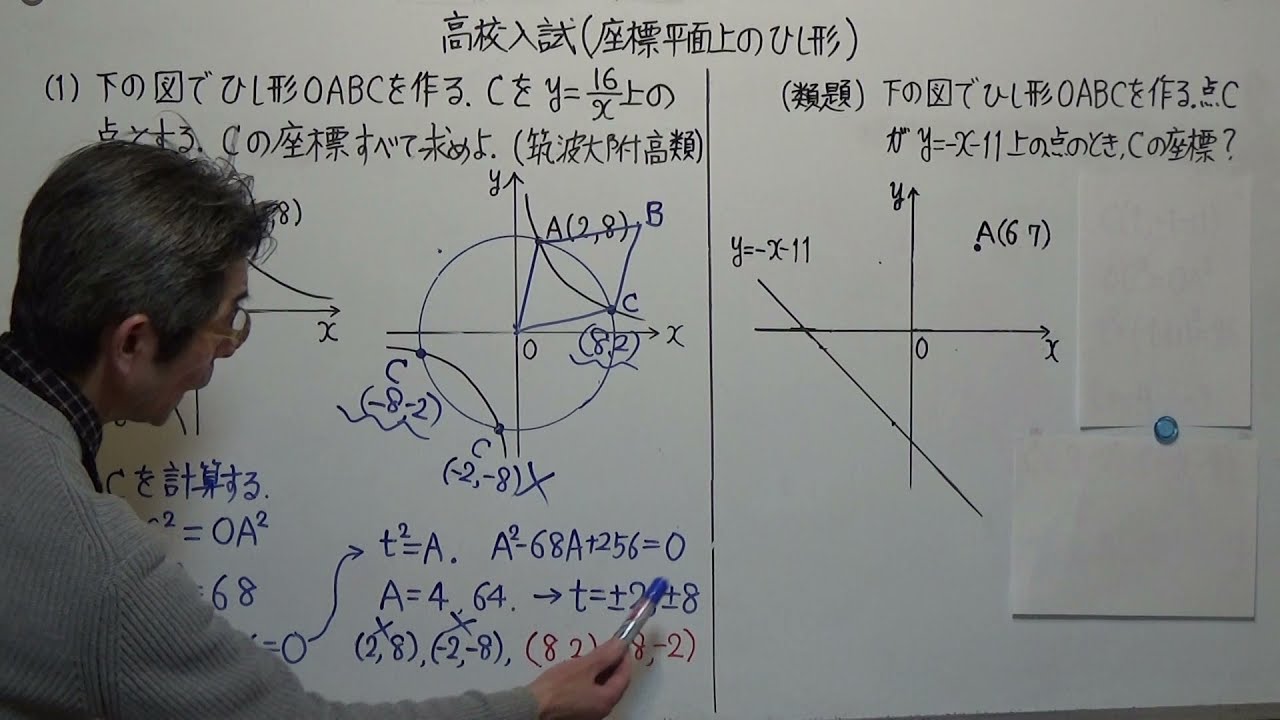 高校入試(座標平面上のひし形)
(1) 下の図でひし形OABCを作る. Cを y=16/x 上の
点とする. Cの座標すべて求めよ. (筑波大附高類)
8)
x
y
A(2,8)
B
C
x
O
(8,2)
C
(-8-2)
C
(-2,-8)×
Cを計算する.
²=OA²
68
=0
t²=A. A²-68A+256=0
A=4, 64. → t=±2, ±8
(2,8), (-2,-8), (8,2) 8,-2)
(類題) 下の図でひし形OABCを作る.点C
が y=-x-11上の点のとき,Cの座標?
y
A(6 7)
y=-x-11
O
x